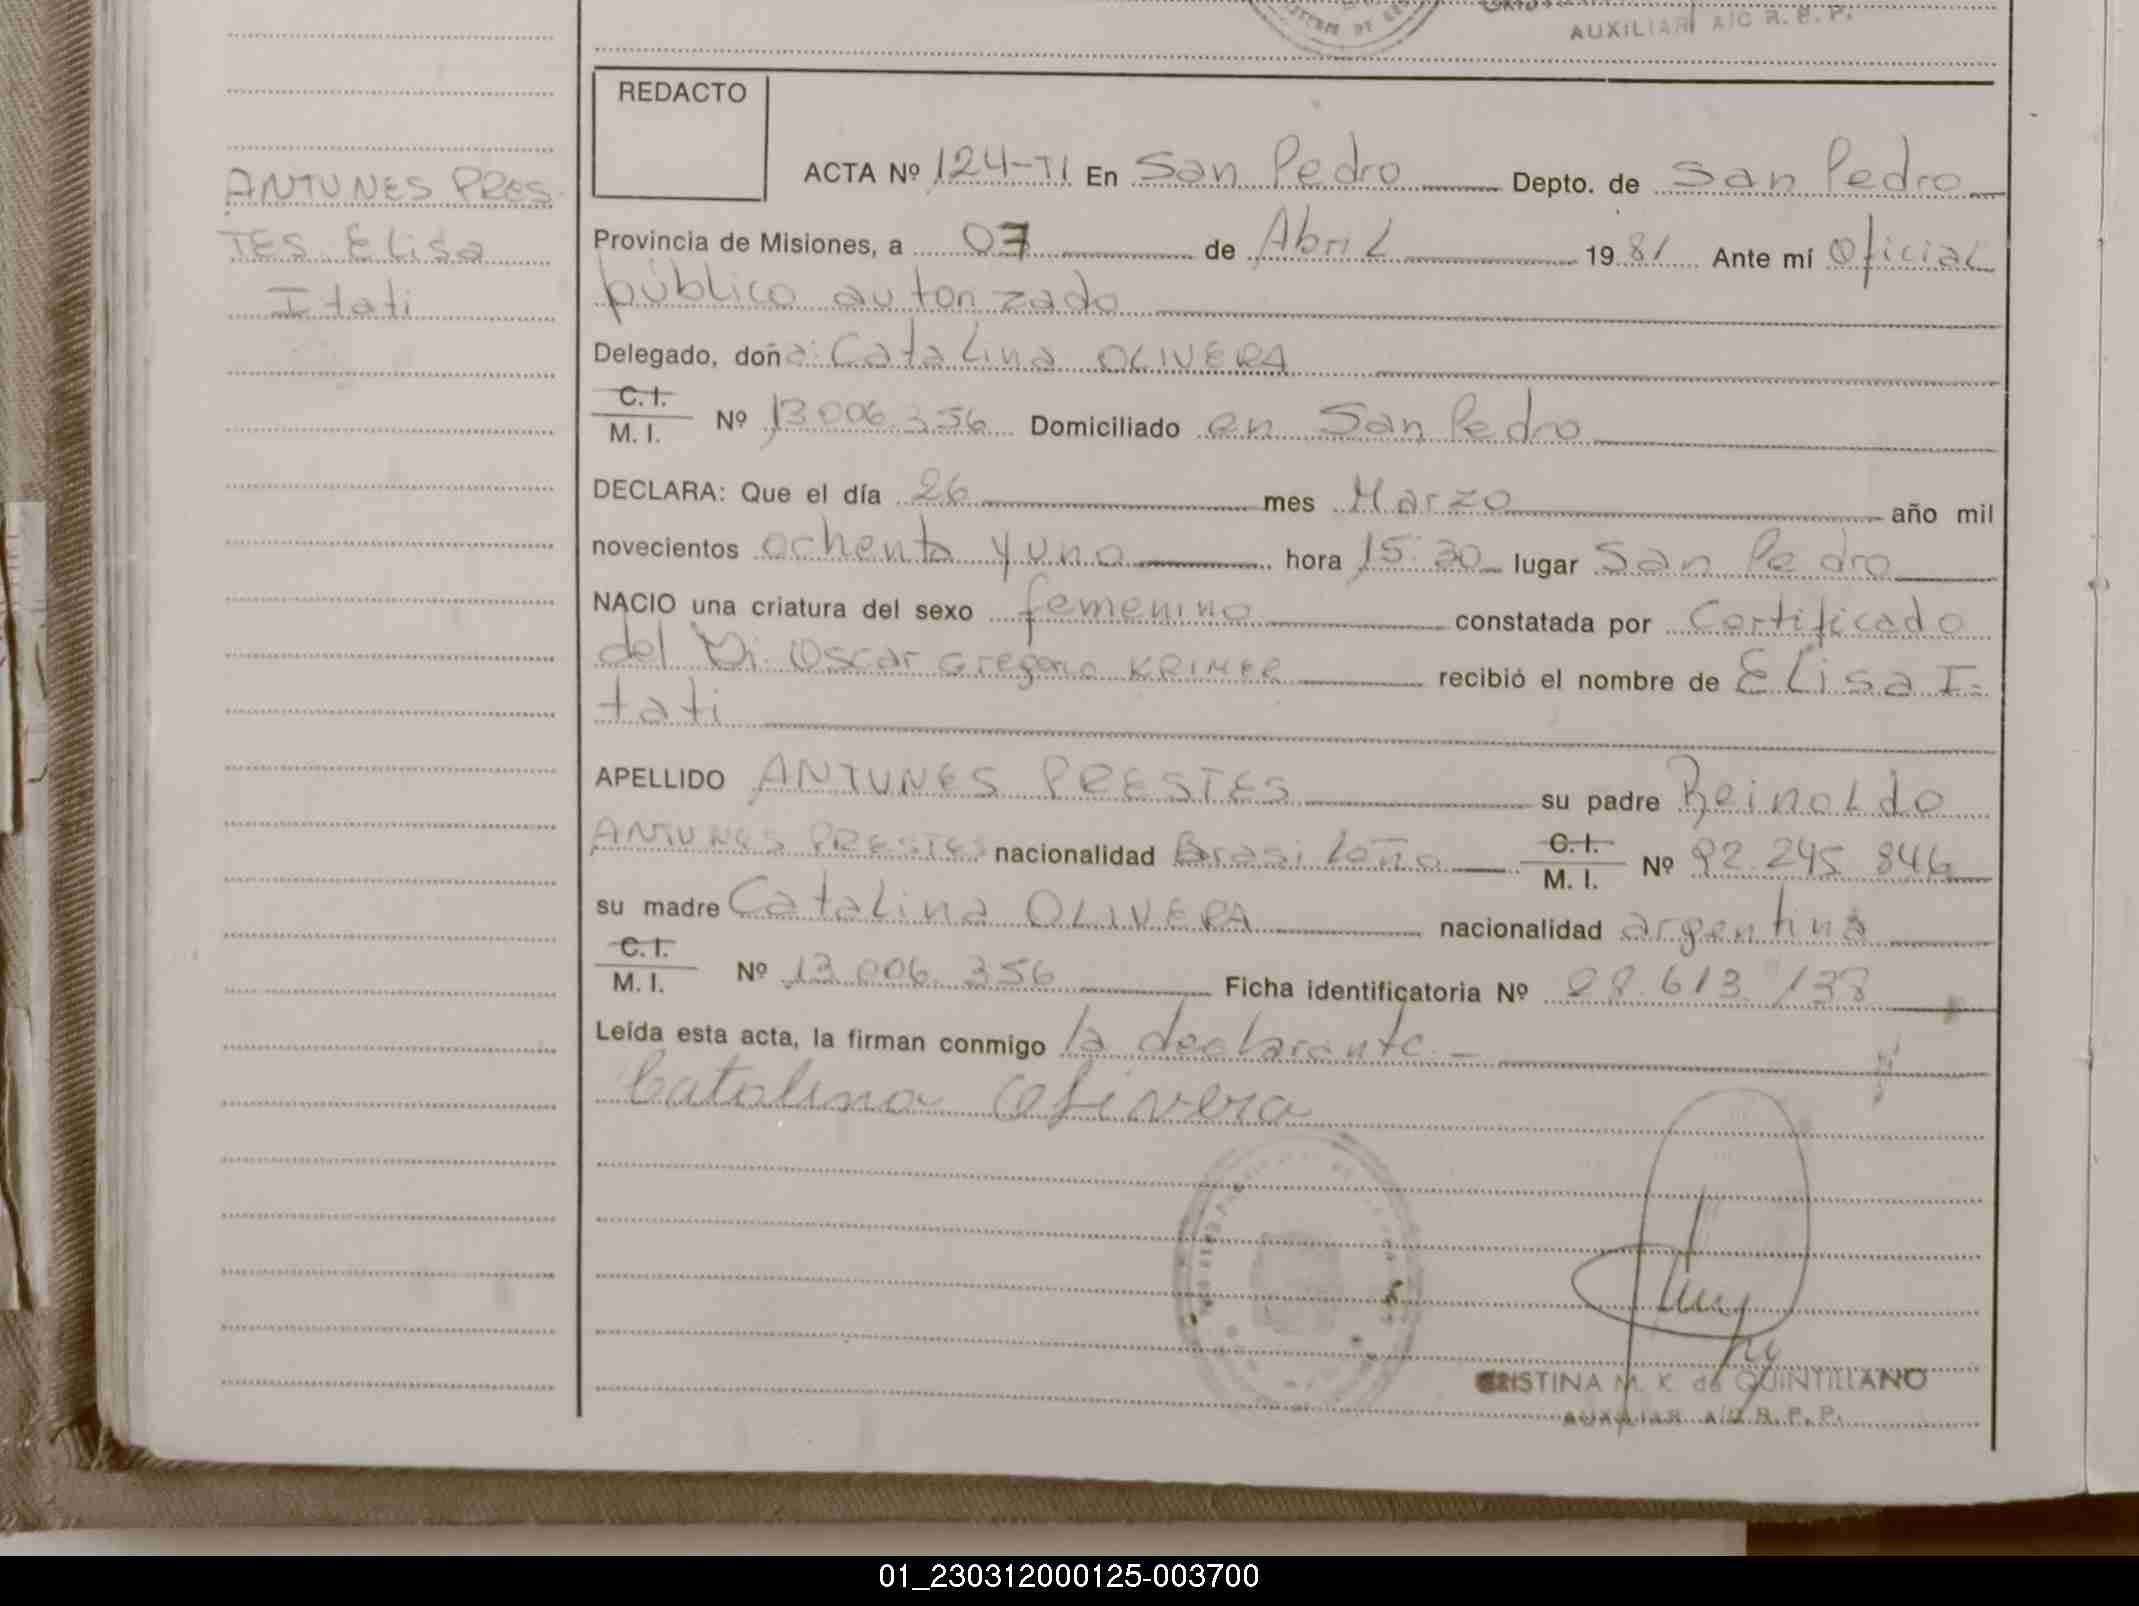 AUXILIAR A/C R. B. P.
REDACTO
ACTA Nº 124-TI En San Pedro Depto. de San Pedro
ANTUNES PRES-
TES Elisa
Itati
Provincia de Misiones, a 07 de Abril 1981 Ante mí Oficial
público autorizado
Delegado, doña: Catalina OLIVERA
C. I.
M. I. Nº 13.006.356 Domiciliado en San Pedro
DECLARA: Que el día 26 mes Marzo año mil
novecientos ochenta y uno hora 15:30 lugar San Pedro
NACIO una criatura del sexo femenino constatada por Certificado
del Dr. Oscar Gregorio KRIMER recibió el nombre de Elisa I-
tati
APELLIDO ANTUNES PRESTES su padre Reinaldo
ANTUNES PRESTES nacionalidad Brasileño C. I.
M. I. Nº 92.245.846
su madre Catalina OLIVERA nacionalidad argentina
C. I.
M. I. Nº 13.006.356 Ficha identificatoria Nº 28.613.138
Leída esta acta, la firman conmigo la declarante.-
Catalina Olivera
CRISTINA M. K. de QUINTILLANO
AUXILIAR A/C R. P. P.
01_230312000125-003700